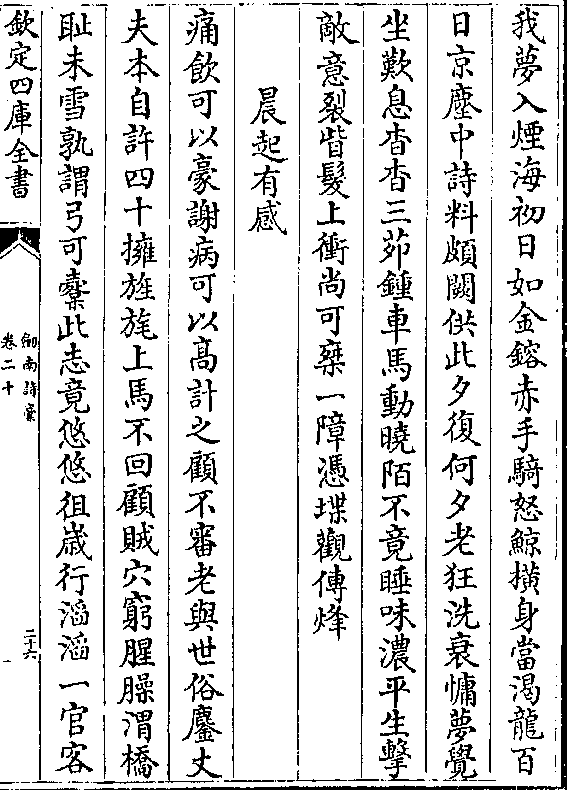 我夢入煙海初日如金鎔赤手騎怒鯨横身當渴龍百
日京塵中詩料頗闕供此夕復何夕老狂洗衰慵夢覺
坐歎息杳杳三茆鍾車馬動曉陌不竟睡味濃平生擊
敵意裂眥髮上衝尚可乗一障憑堞觀傳烽
晨起有感
痛飲可以豪謝病可以髙計之顧不審老與世俗鏖丈
夫本自許四十擁旌旄上馬不回顧賊穴窮腥臊渭橋
耻未雪孰謂弓可櫜此志竟悠悠徂嵗行滔滔一官客
欽定四庫全書
劔南詩藁
卷二十
二十六